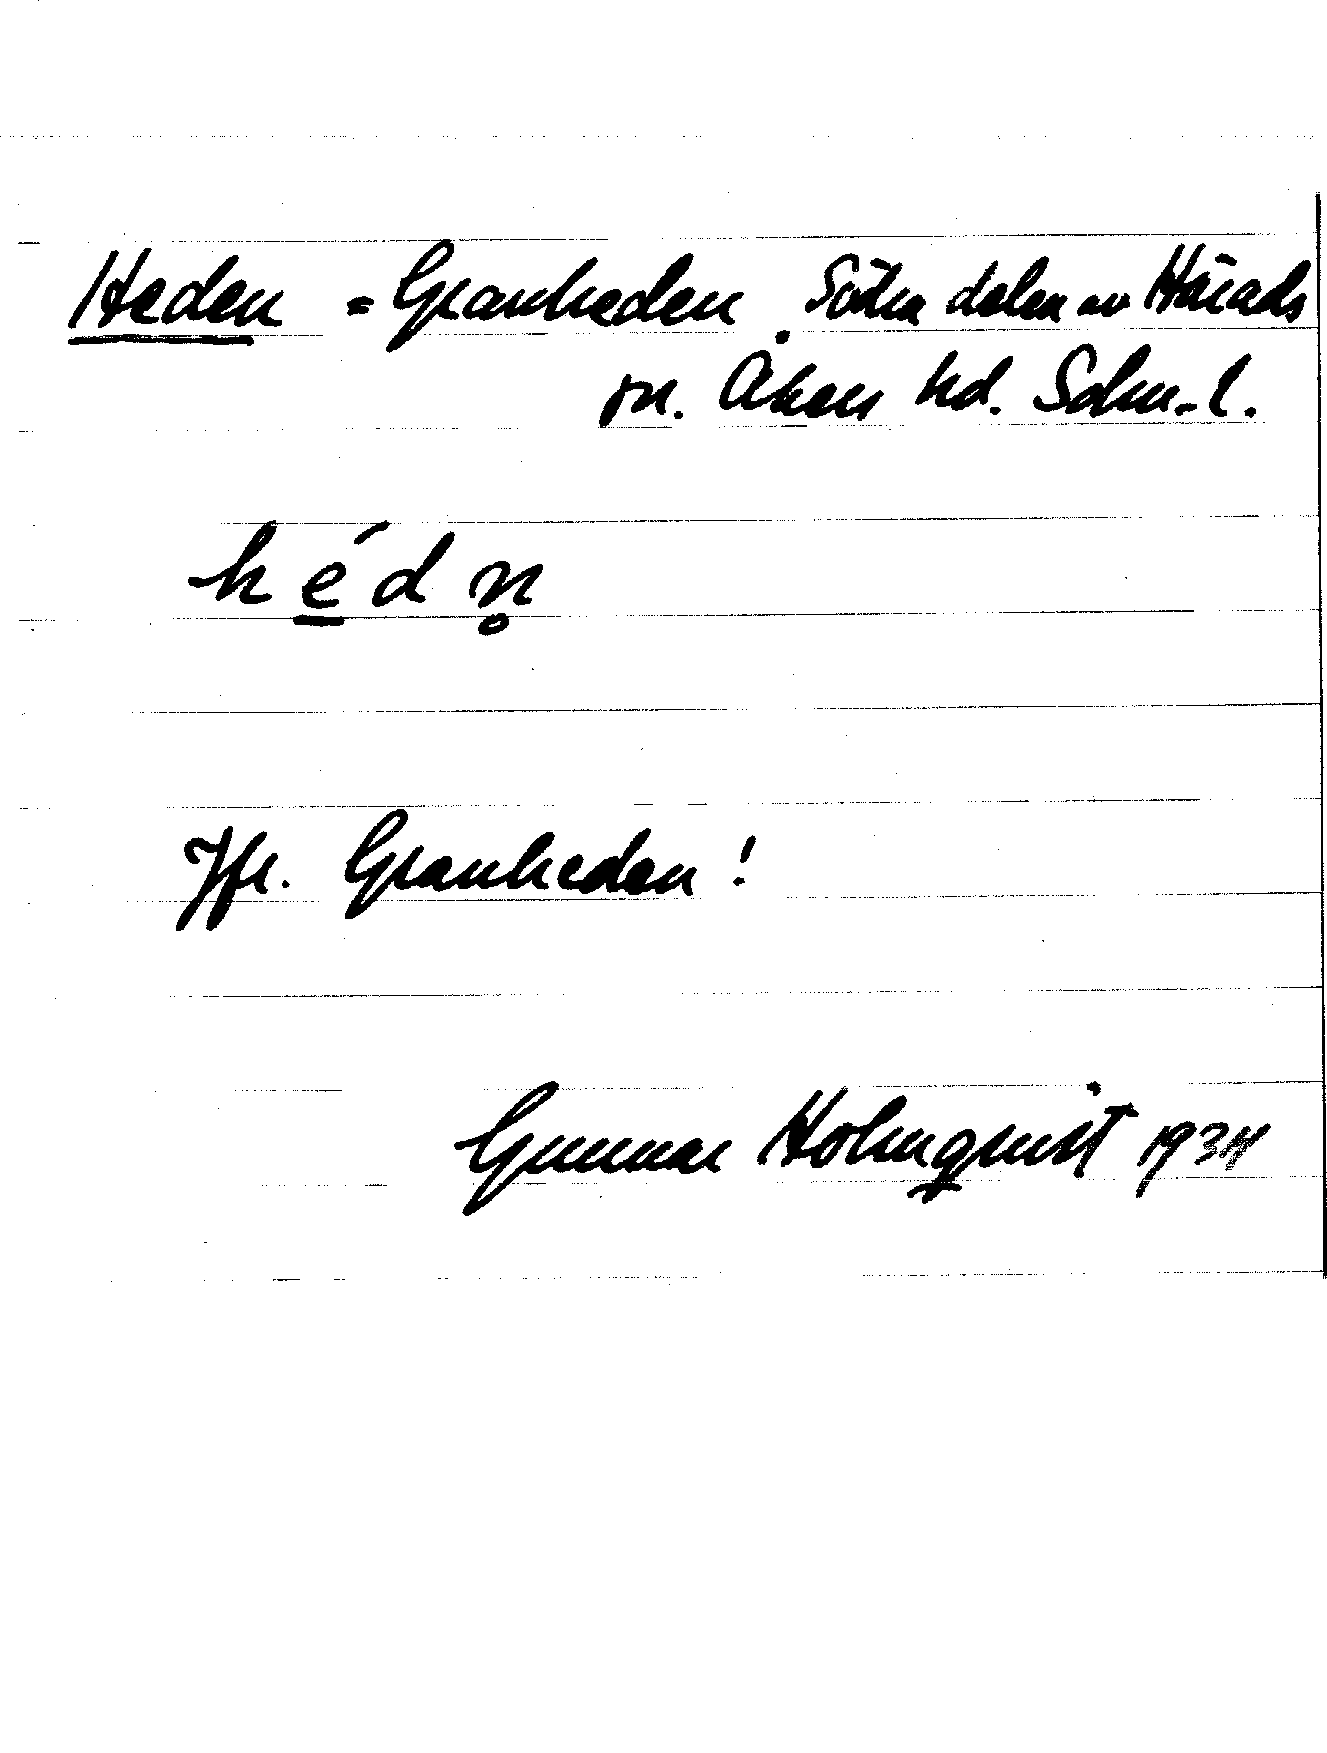 Heden = Granheden. Södra delen av Härads
sn. Åkers hd. Sdm. l.
hédn̥
Jfr. Granheden!
Gunnar Holmqvist 1934